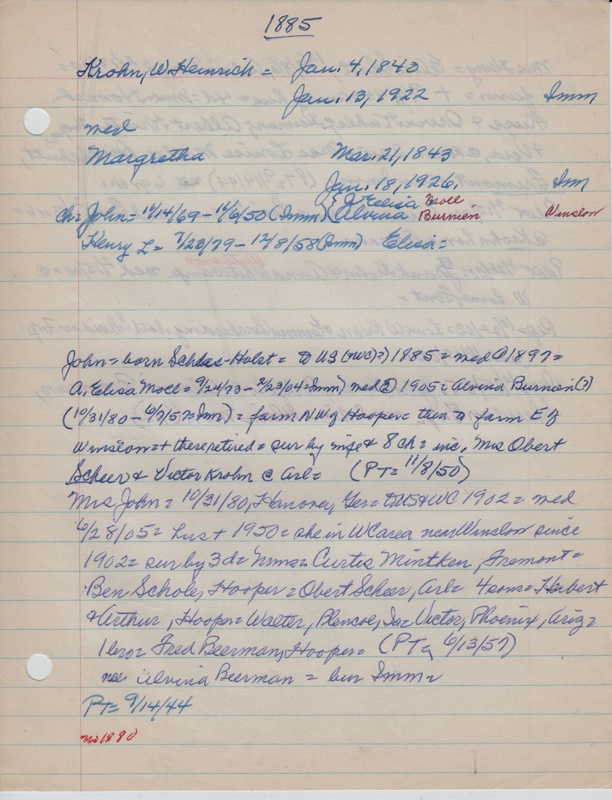 1885
Krohn, W. Heinrich = Jan. 4, 1843
Jan. 13, 1922 Imm
med
Margretha Mar. 21, 1843
Jan. 18, 1926. Imm
Ch = John = 11/14/69 - 11/6/50 (Imm) Elisa Moll
Alvina Burmien Winslow
Henry L = 7/28/79 - 12/8/58 (Imm) Elisa =
John = born Schles-Holst = to US (+WC)=) 1885 = med ① 1897 =
A. Elisa Moll = 9/24/73 - 2/23/04 = Imm) med ② 1905 = Alvina Burmien (?)
(10/31/80 - 6/7/57 = Imm) = farm NW of Hooper = then to farm E of
Winslow = + there retired = sur by wife & 8 ch = inc, Mrs Obert
Scheer & Victor Krohn @ Arl = (PT = 11/8/50)
Mrs John = 10/31/80, Hanover, Ger = to US & WC 1902 = med
6/28/05 = hus + 1950 = she in WC area near Winslow since
1902 = sur by 3 d = Mmes = Curtis Mintken, Fremont =
Ben Schole, Hooper = Obert Scheer, Arl = 4 sons = Herbert
& Arthur, Hooper = Walter, Ia = Victor, Phoenix, Ariz =
1 bro = Fred Beerman, Hooper = (PT = 6/13/57)
nee Alvina Beerman = bur Imm =
PT = 9/14/44
no 1880